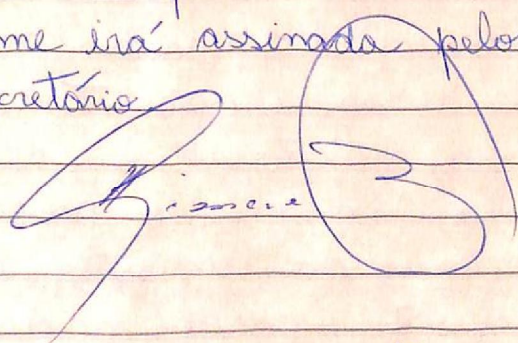 me irá assinada pelo
cretário